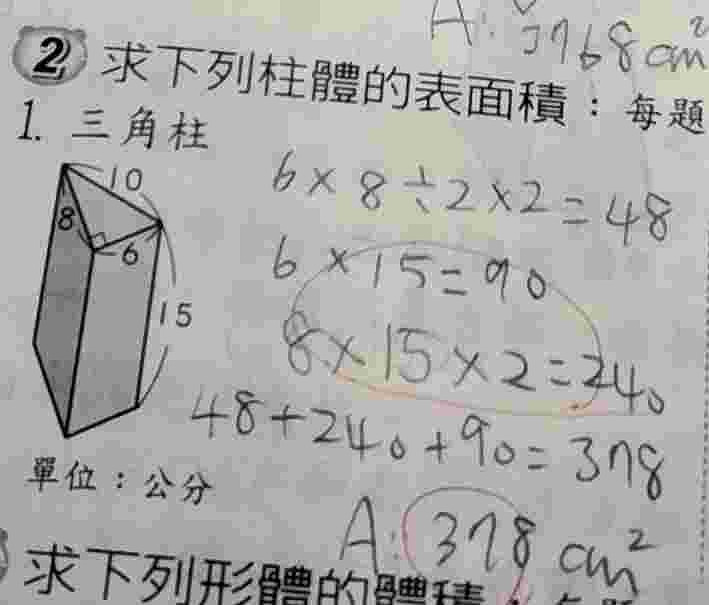 A: 3768cm²
2 求下列柱體的表面積：每題
1. 三角柱
10
8
6
15
6×8÷2×2=48
6×15=90
8×15×2=240
48+240+90=378
單位：公分
A: 378 cm²
求下列形體的體積：